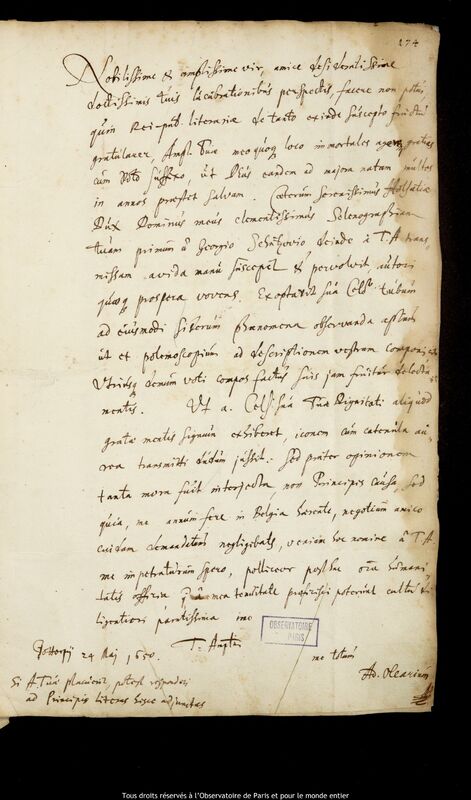 174
Nobilissime & amplissime vir, amice desideratissime
doctissimis tuis lucubrationibus perspectis, facere non potui,
quin Rei-pub. literariæ de tanto exinde suscepto fructu
gratularer, Ampl. Tuæ meoquoq loco immortales agerem gratias
cum voto suffixo, ut Deus eandem ad majora natam multos
in annos præstet salvam. Cæterum Serenissimus Holsatiæ
Dux Dominus meus clementissimus Selenographiam
tuam primum a Georgio deinde à T. A. trans-
missam avida manu suscepit & pervolvit, autori
quæq prospera vovens. Exoptavit sua Cels. tubum
ad ejusmodi siderum Phænomena observanda
ut et polemoscopium ad descriptionem vestram componi
Utriusq demum voti compos factus suis jam fruitur delecta-
mentis. Ut a. Cels. sua Tuæ Dignitati aliquod
gratæ mentis signum exhiberet, iconem cum catenula au-
rea transmitti dudum jussit. Sed præter opinionem
tanta mora fuit interjecta, non Principis causa, sed
quia, me annum fere in Belgia hærente, negotium amico
cuidam demandatum negligebatur, veniam hoc nomine à T. A.
me impetraturum spero, polliceor posthac omnia humani-
tatis officia quæ a mea tenuitate proficisci poterunt cultu di-
ligentiori paratissima imo
T. Ampl.
me totum
Gottorpij 24 Maj 1650.
Ad. Olearium
Si A. Tuæ placuerit, potest respondere
ad Principis literas hisce adjunctas
OBSERVATOIRE
DE PARIS
Tous droits réservés à l'Observatoire de Paris et pour le monde entier